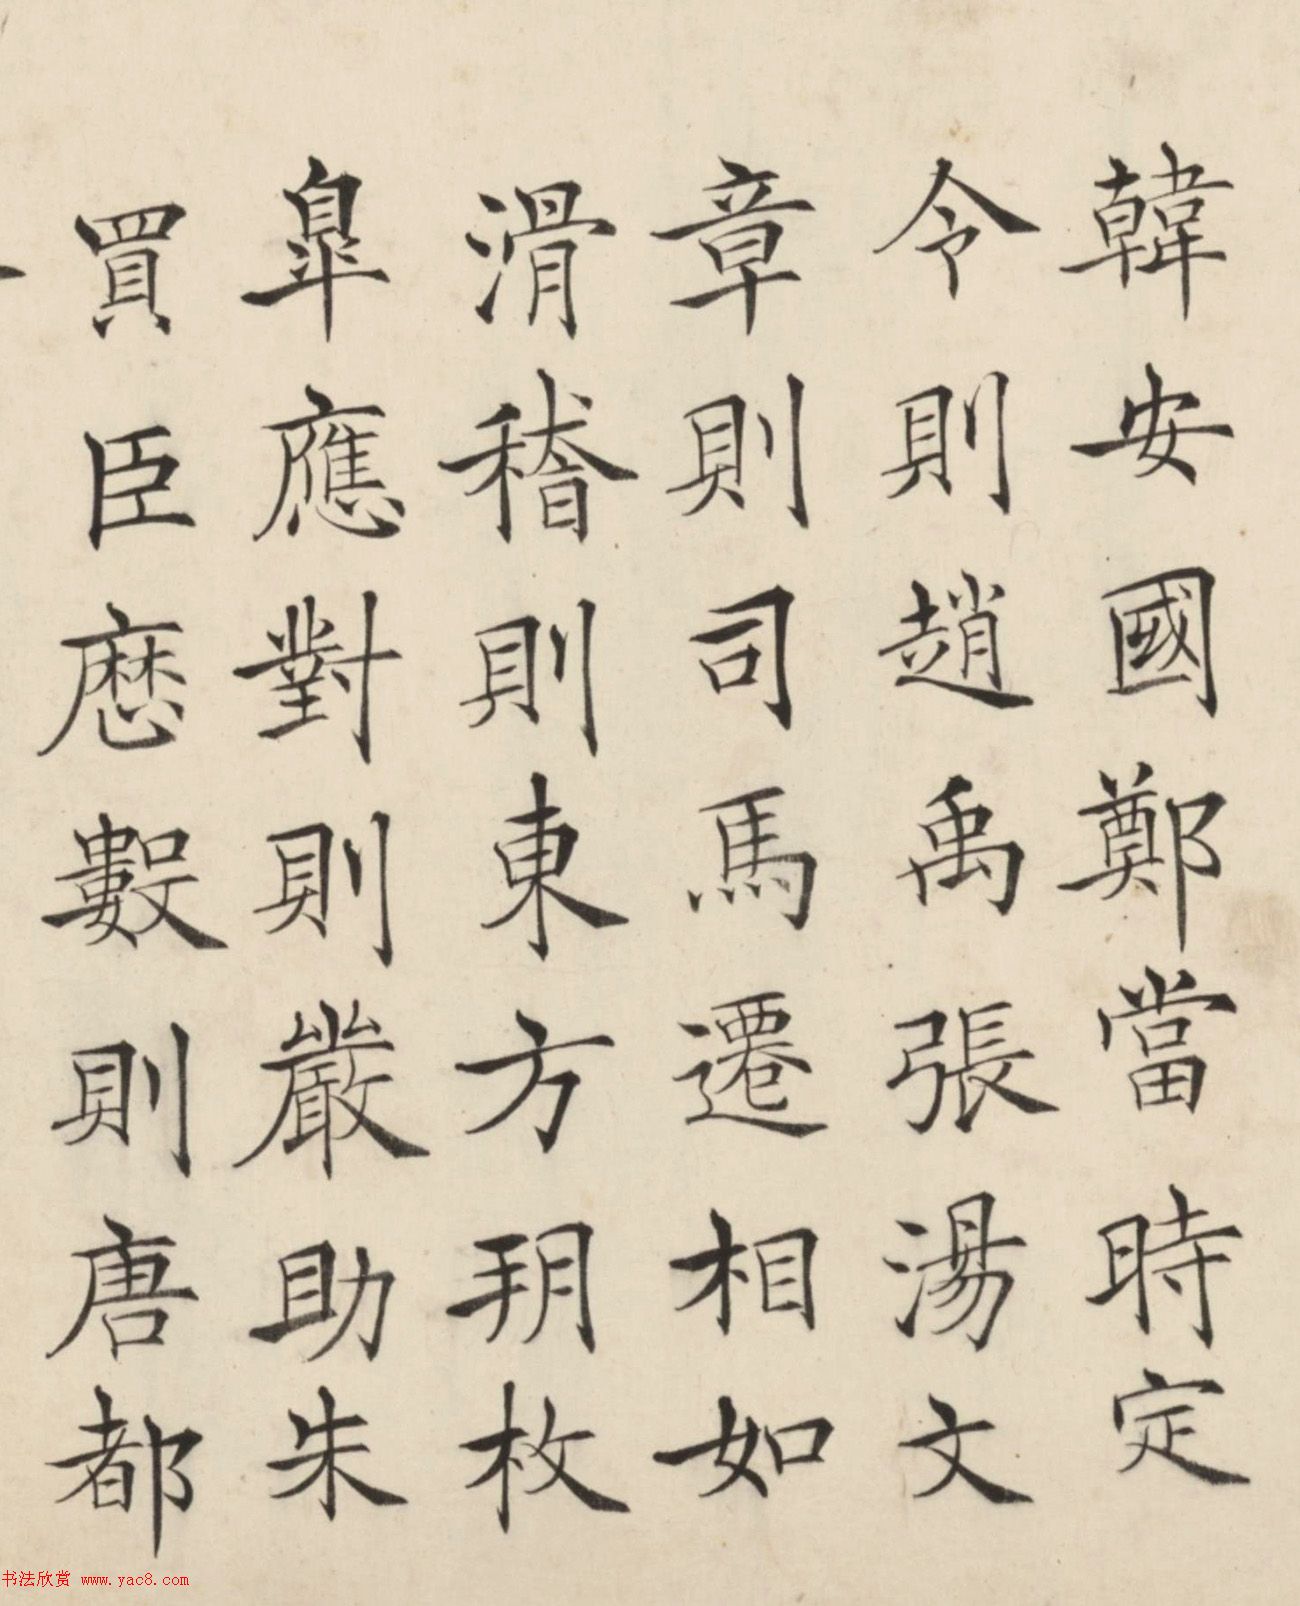 韓安國鄭當時定
令則趙禹張湯文
章則司馬遷相如
滑稽則東方朔枚
皐應對則嚴助朱
買臣厯數則唐都
书法欣赏 www.yac8.com